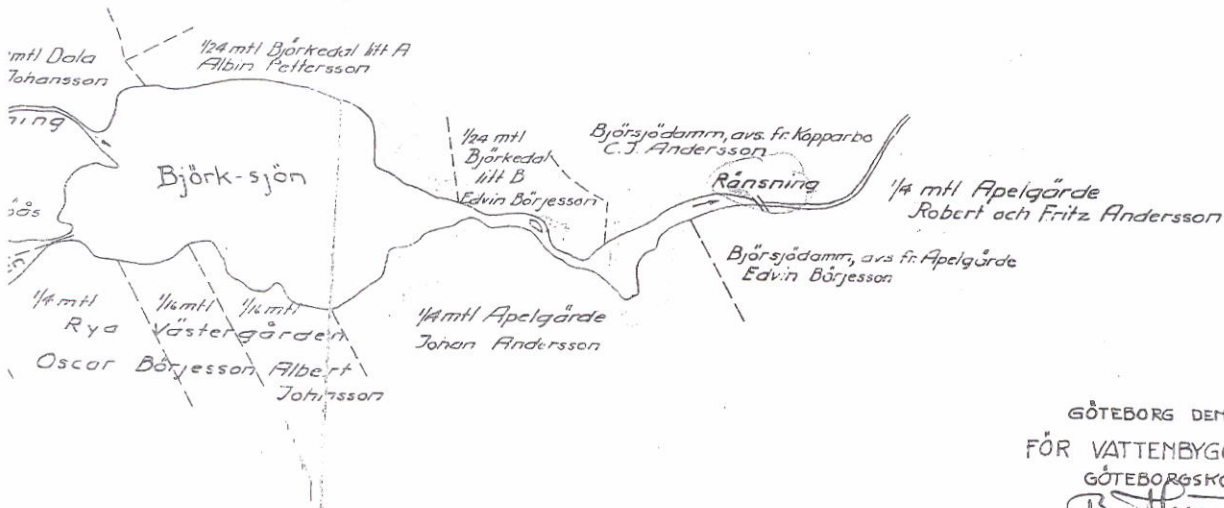 mtl Dala
Johansson
1/24 mtl Björkedal litt A
Albin Pettersson
ning
Björk-sjön
1/24 mtl
Björkedal
litt B
Edvin Börjesson
Björsjödamm, avs. fr. Kopparbo
C.J. Andersson
Rånsning
1/4 mtl Apelgärde
Robert och Fritz Andersson
Björsjödamm, avs fr. Apelgärde
Edvin Börjesson
ås
1/4 mtl
Rya
1/16 mtl 1/16 mtl
Västergården
Oscar Börjesson Albert
Johansson
1/4 mtl Apelgärde
Johan Andersson
GÖTEBORG DEN
FÖR VATTENBYGG
GÖTEBORGSKO